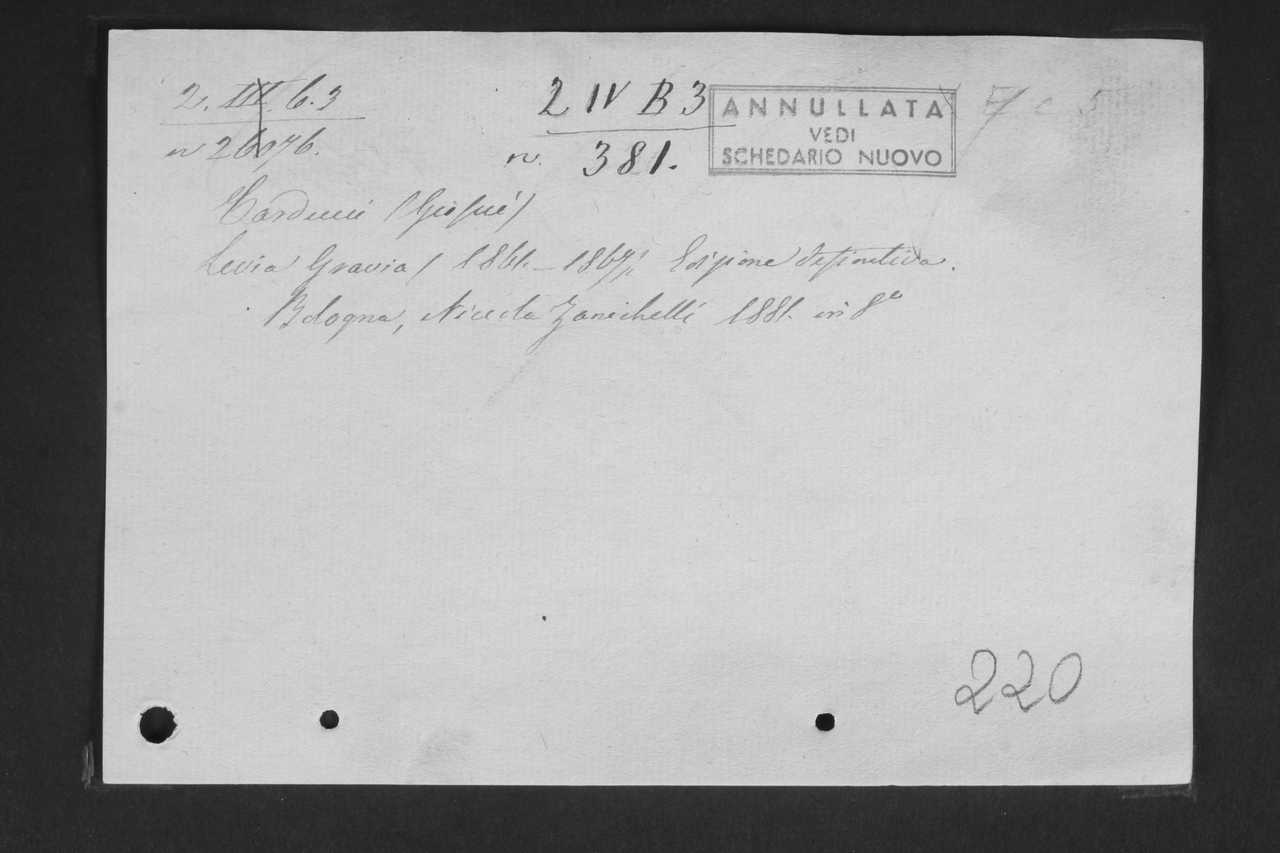 2. III. 6.3
2 IV B 3
ANNULLATA
VEDI
SCHEDARIO NUOVO
n. 381.
Carducci (Giosuè)
Levia Gravia (1861.-1867) Edizione definitiva.
Bologna, Nicola Zanichelli 1881. in 8°
220